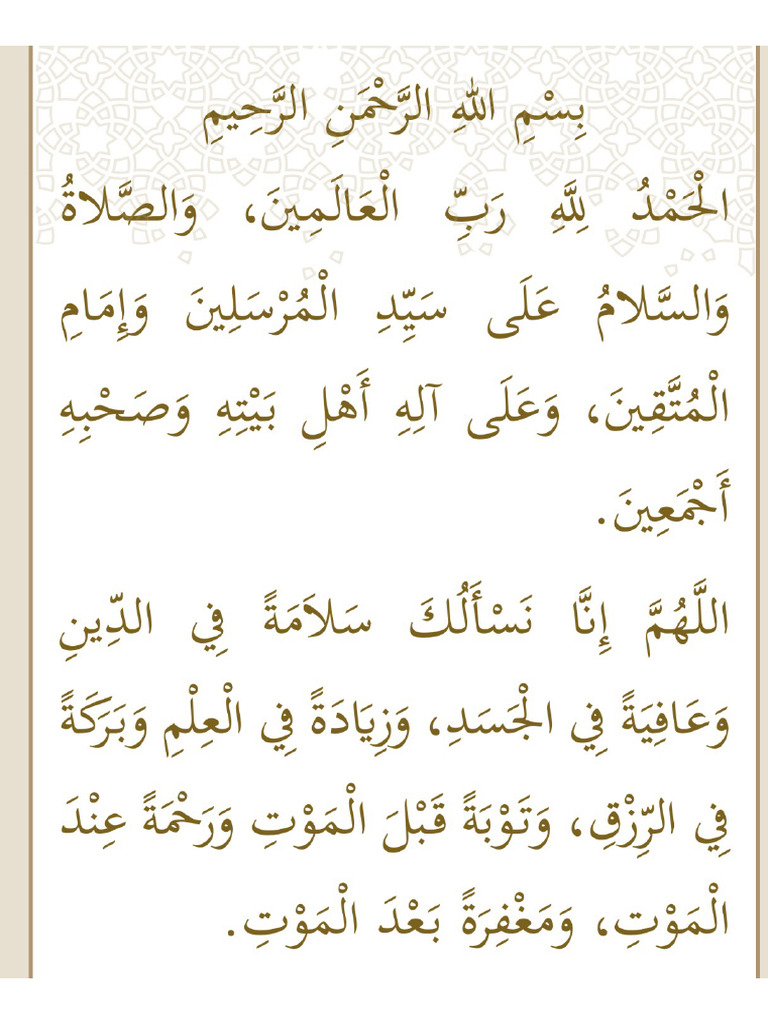 بِسْمِ اللهِ الرَّحْمَنِ الرَّحِيمِ
الْحَمْدُ لِلَّهِ رَبِّ الْعَالَمِينَ، وَالصَّلاةُ
وَالسَّلامُ عَلَى سَيِّدِ الْمُرْسَلِينَ وَإِمَامِ
الْمُتَّقِينَ، وَعَلَى آلِهِ أَهْلِ بَيْتِهِ وَصَحْبِهِ
أَجْمَعِينَ.
اللَّهُمَّ إِنَّا نَسْأَلُكَ سَلاَمَةً فِي الدِّينِ
وَعَافِيَةً فِي الْجَسَدِ، وَزِيَادَةً فِي الْعِلْمِ وَبَرَكَةً
فِي الرِّزْقِ، وَتَوْبَةً قَبْلَ الْمَوْتِ وَرَحْمَةً عِنْدَ
الْمَوْتِ، وَمَغْفِرَةً بَعْدَ الْمَوْتِ.